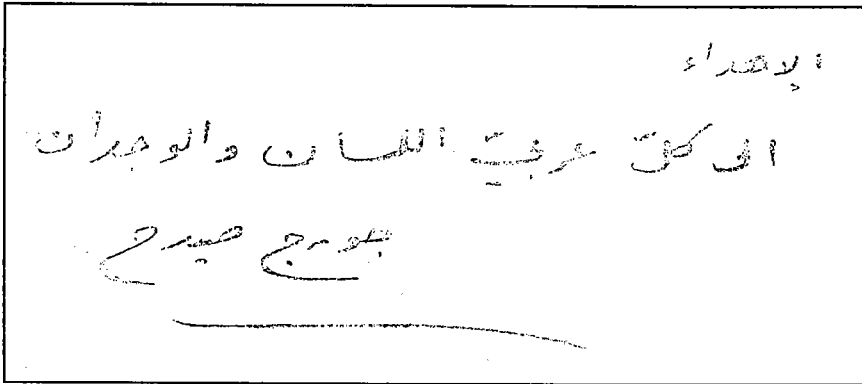 الإهداء
الى كلّ عربيّ اللسان والوجدان
جورج صيدح